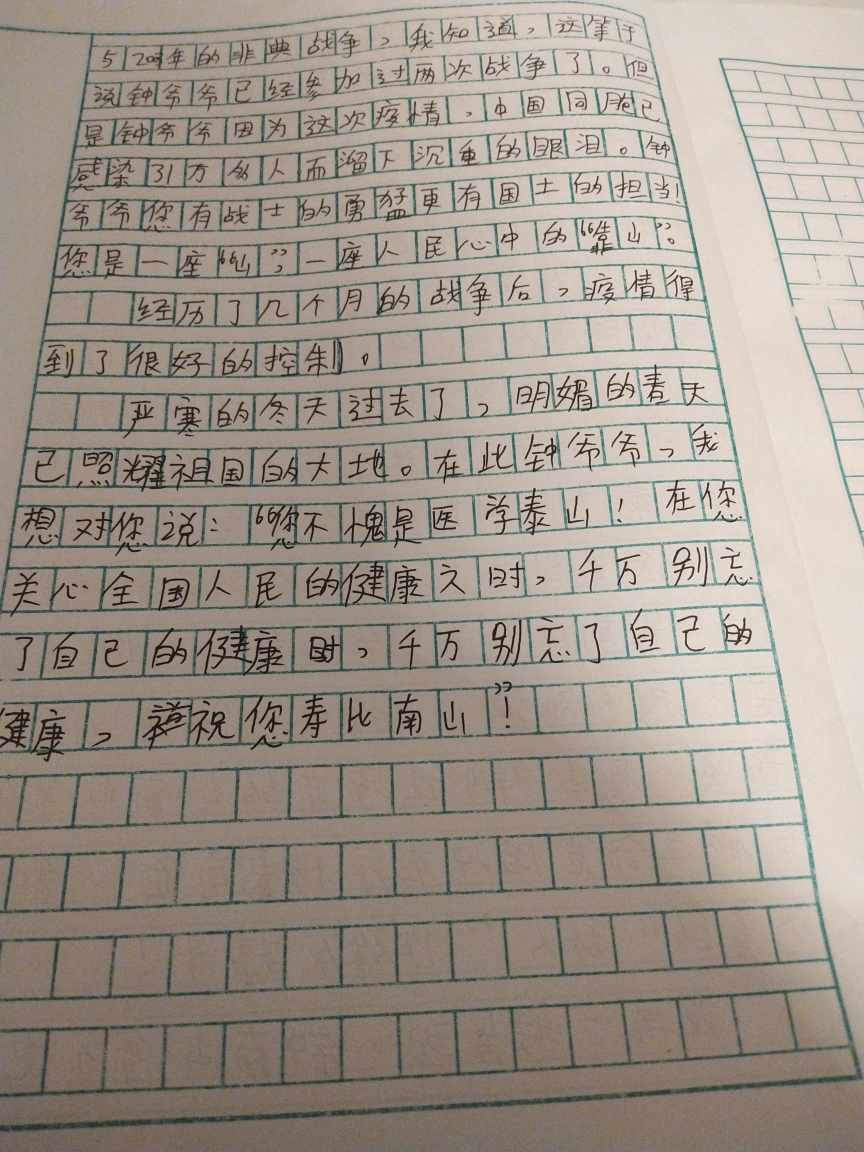 5 2003年的非典战争，我知道，这等于
说钟爷爷已经参加过两次战争了。但
是钟爷爷因为这次疫情，中国同胞已
感染31万多人而溜下沉重的眼泪。钟
爷爷您有战士的勇猛更有国士的担当！
您是一座“山”；一座人民心中的“靠山”。
经历了几个月的战争后，疫情得
到了很好的控制。
严寒的冬天过去了，明媚的春天
已照耀祖国的大地。在此钟爷爷，我
想对您说：“您不愧是医学泰山！在您
关心全国人民的健康之时，千万别忘
了自己的健康时，千万别忘了自己的
健康，祝您寿比南山”！